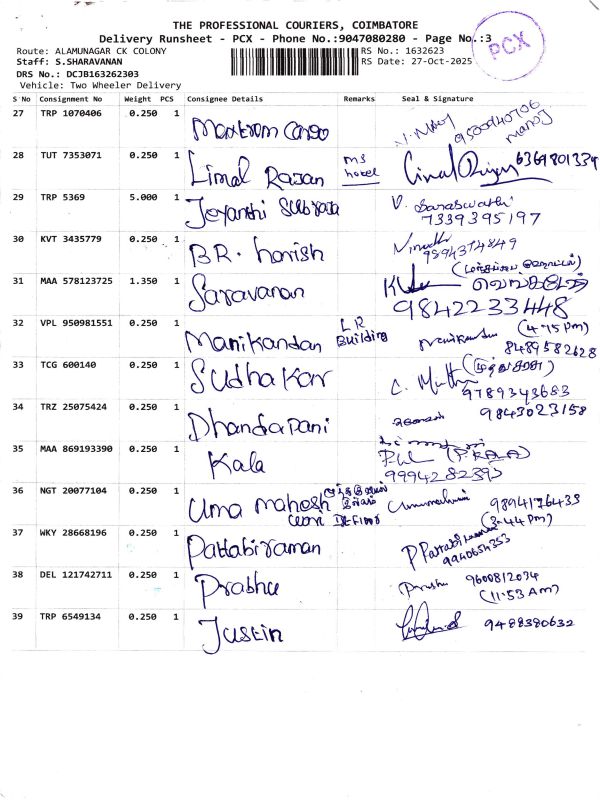 THE PROFESSIONAL COURIERS, COIMBATORE
Delivery Runsheet - PCX - Phone No.:9047080280 - Page No.:3
PCX
Route: ALAMUNAGAR CK COLONY
RS No.: 1632623
Staff: S.SHARAVANAN
RS Date: 27-Oct-2025
DRS No.: DCJB163262303
Vehicle: Two Wheeler Delivery
S No Consignment No Weight PCS Consignee Details Remarks Seal & Signature
27 TRP 1070406 0.250 1 9500940706
Manoj
28 TUT 7353071 0.250 1 Limal Rajan ms hotel 6369801339
29 TRP 5369 5.000 1 Jeyanthi V. Saraswathi
7339395197
30 KVT 3435779 0.250 1 BR. harish 9894374849
31 MAA 578123725 1.350 1 Saravanan
9842233448
32 VPL 950981551 0.250 1 Manikandan LR Building Manikandan (4-15 Pm)
8489582628
33 TCG 600140 0.250 1 Sudhakar C. Muthu
9789343683
34 TRZ 25075424 0.250 1 Dhandapani 9843023158
35 MAA 869193390 0.250 1 Kala
36 NGT 20077104 0.250 1 Uma Mahesh 9894176433
(3-44 Pm)
37 WKY 28668196 0.250 1 Pattabiraman P Pattabiraman
9940654353
38 DEL 121742711 0.250 1 Prabhu 9600812034
(11:53 Am)
39 TRP 6549134 0.250 1 Justin 9488380632